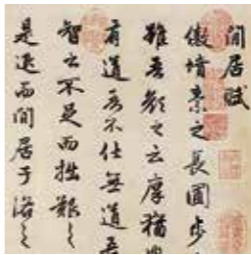 閒居賦
傲墳素之長圃步
雖吾顏之云厚猶
有道吾不仕無道吾
智之不足而拙艱之
是退而閒居于洛之